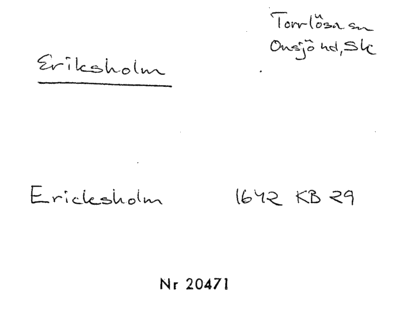 Torrlösa sn
Onsjö hd, Sk
Eriksholm
Ericksholm 1642 KB 29
Nr 20471